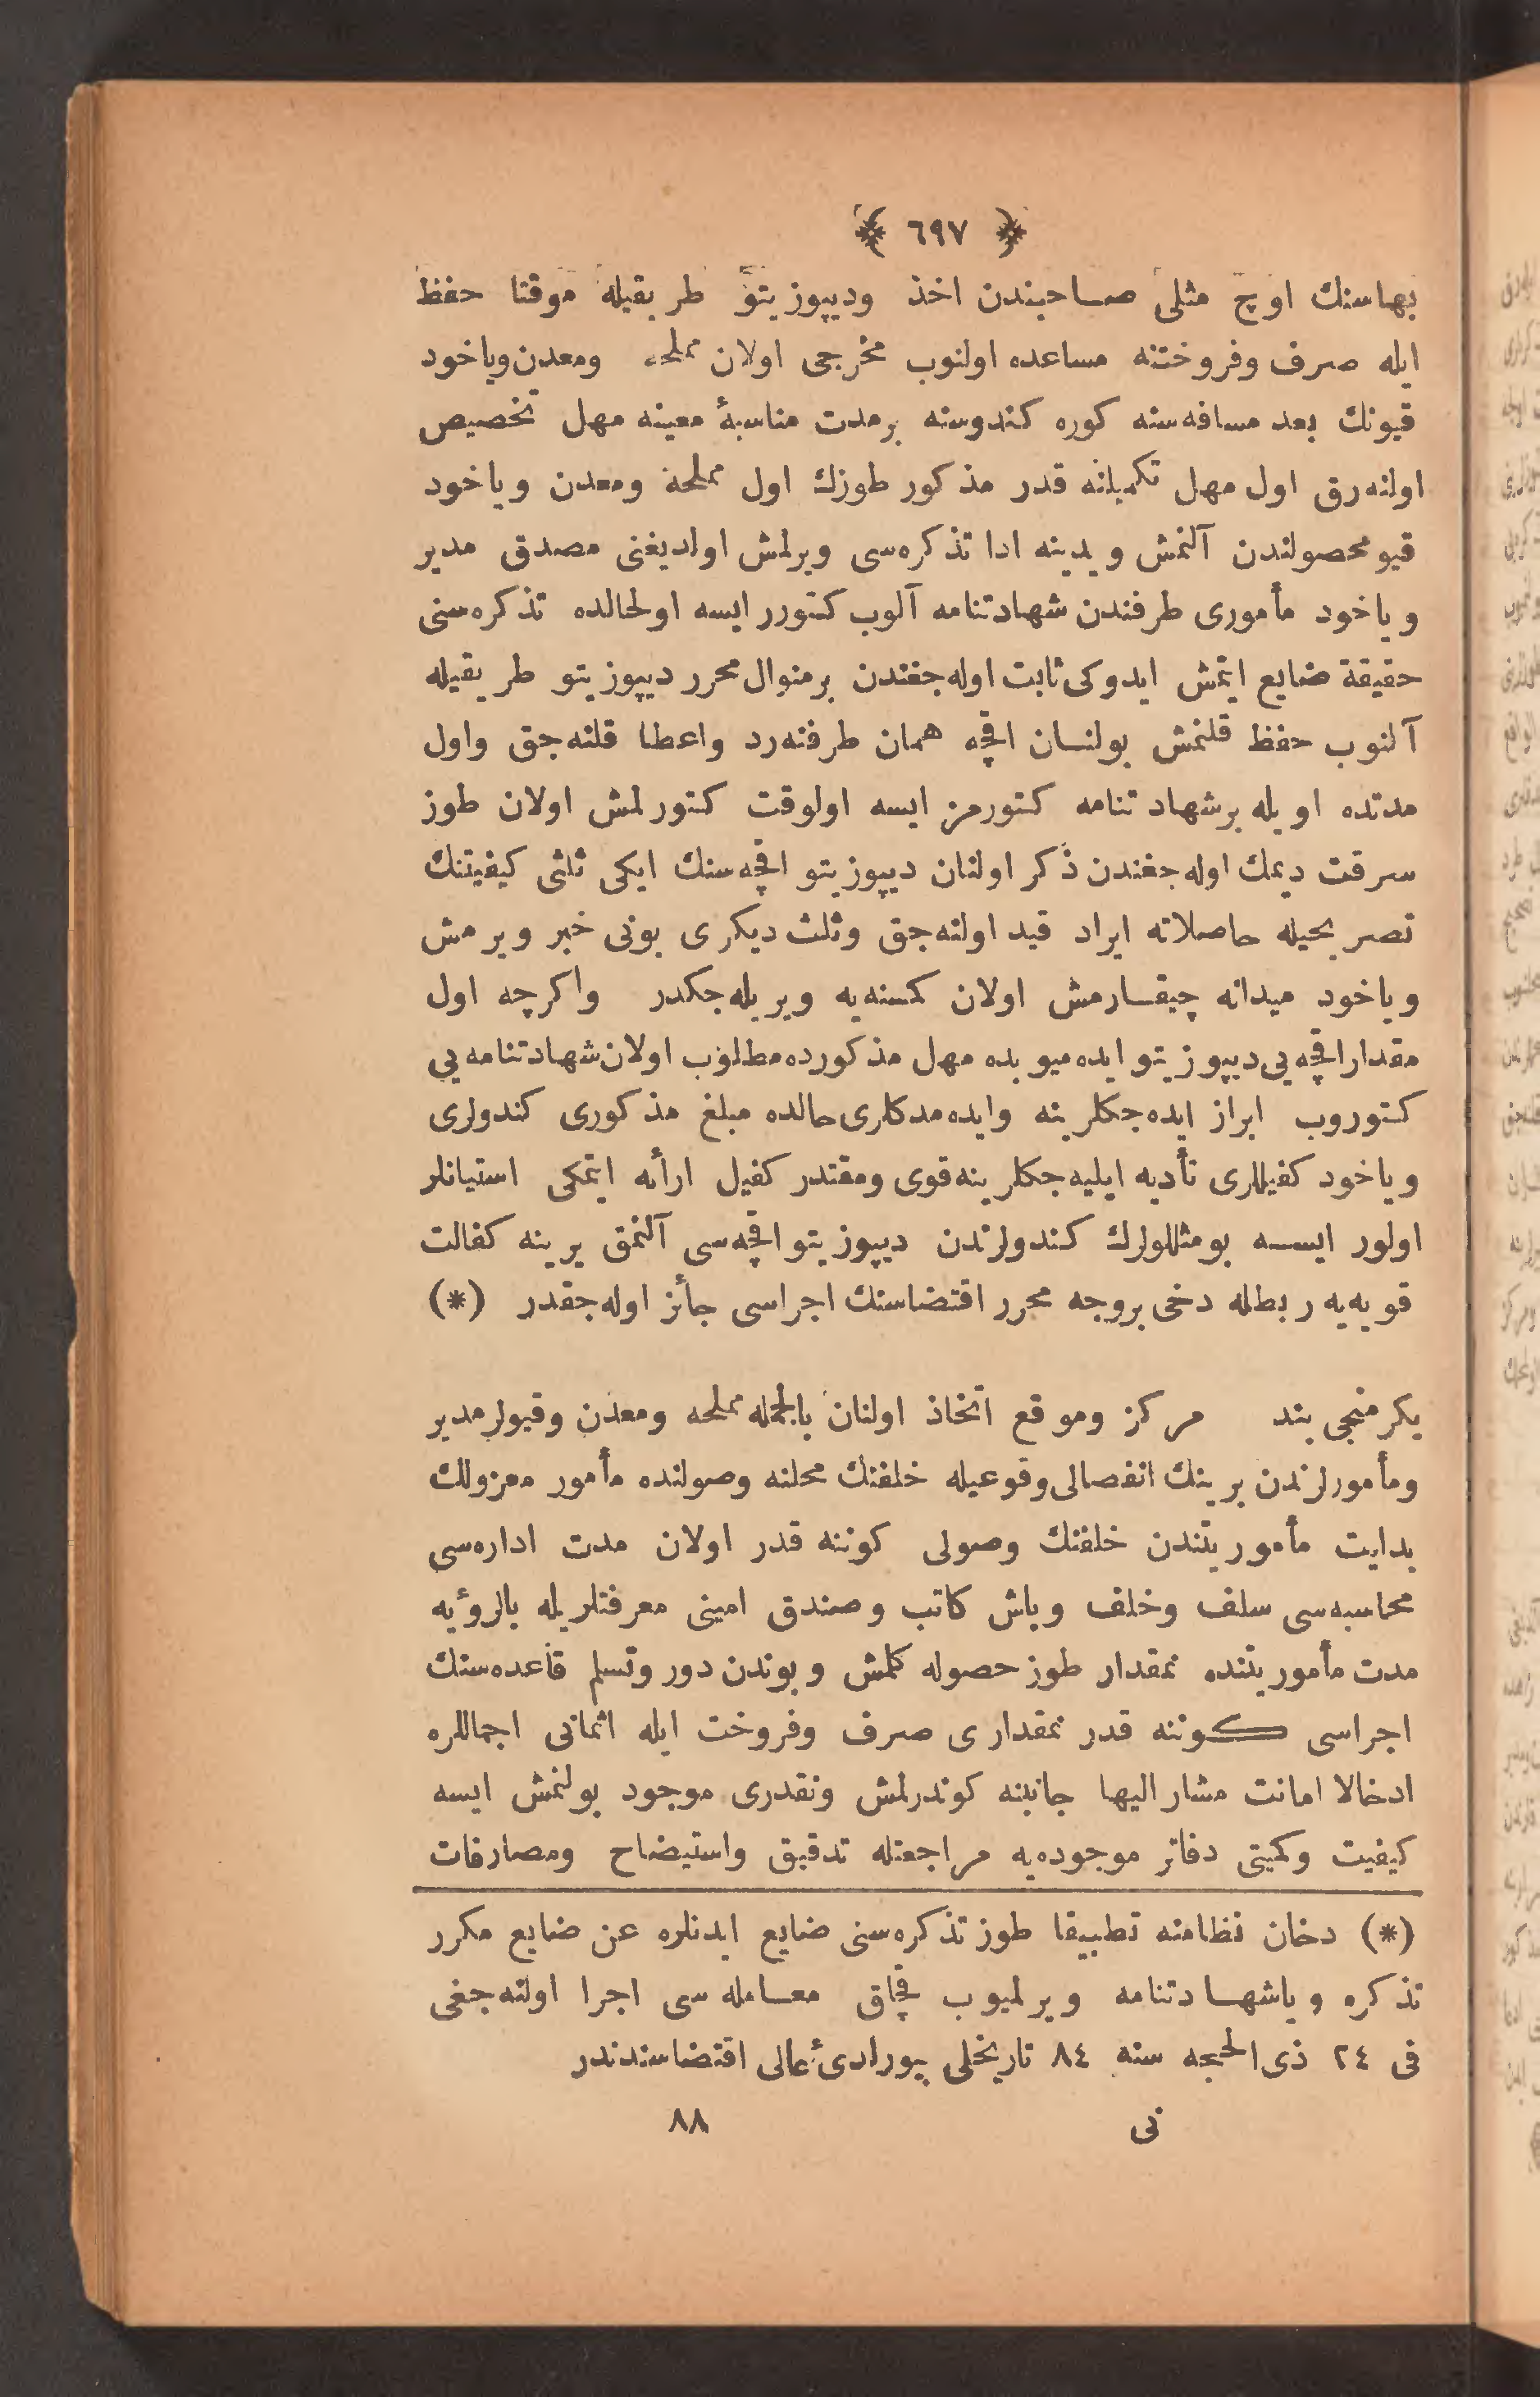 ﴿ ٦٩٧ ﴾
بهاسنك اوچ مثلی صاحبندن اخذ وديپوزيتو طريقيله موقتا حفظ
ايله صرف وفروختنه مساعده اولنوب مخرجی اولان مملحه ومعدن وياخود
قيونك بعد مسافه‌سنه كوره كندوسنه برمدت مناسبۀ معينه مهل تخصيص
اولنه‌رق اول مهل تكميلنه قدر مذكور طوزك اول مملحه ومعدن وياخود
قيو محصولندن آلنمش ويدينه ادا تذكره‌سی ويرلمش اولديغنی مصدق مدير
وياخود مأموری طرفندن شهادتنامه آلوب كتورر ايسه اولحالده تذكره‌سنی
حقيقة ضايع ايتمش ايدوكی ثابت اوله‌جغندن برمنوال محرر ديپوزيتو طريقيله
آلنوب حفظ قلنمش بولنسان اقچه همان طرفنه‌رد واعطا قلنه‌جق واول
مدتده اويله برشهادتنامه كتورمز ايسه اولوقت كتورلمش اولان طوز
سرقت ديمك اوله‌جغندن ذكر اولنان ديپوزيتو اقچه‌سنك ايكی ثلثی كيفيتنك
تصريحيله حاصلاته ايراد قيد اولنه‌جق وثلث ديكری بونی خبر ويرمش
وياخود ميدانه چيقسارمش اولان كمسنه‌يه ويريله‌جكدر واكرچه اول
مقدار اقچه‌يی ديپوزيتو ايده‌ميوبده مهل مذكورده مطلوب اولان شهادتنامه‌يی
كتوروب ابراز ايده‌جكلرينه وايده‌مدكلری حالده مبلغ مذكوری كندولری
وياخود كفيللری تأديه ايليه‌جكلرينه قوی ومقتدر كفيل ارائه ايتمكی استيانلر
اولور ايسه بومثللولرك كندولرندن ديپوزيتو اقچه‌سی آلنمق يرينه كفالت
قويه‌يه ربطله دخی بروجه محرر اقتضاسنك اجراسی جائز اوله‌جقدر (*)
يكرمنجی بند مركز وموقع اتخاذ اولنان بالجمله مملحه ومعدن وقيولر مدير
ومأمورلرندن برينك انفصالی وقوعيله خلفنك محلنه وصولنده مأمور معزولك
بدايت مأموريتندن خلفنك وصولی كوننه قدر اولان مدت اداره‌سی
محاسبه‌سی سلف وخلف وباش كاتب وصندق امينی معرفتلريله بالرؤيه
مدت مأموريتنده نمقدار طوز حصوله كلمش وبوندن دور وتسلم قاعده‌سنك
اجراسی كوننه قدر نمقداری صرف وفروخت ايله اثمانی اجماللره
ادخالا امانت مشار اليها جانبنه كوندرلمش ونقدری موجود بولنمش ايسه
كيفيت وكميتی دفاتر موجوده‌يه مراجعتله تدقيق واستيضاح ومصارفات
(*) دخان نظامنه تطبيقا طوز تذكره‌سنی ضايع ايدنلره عن ضايع مكرر
تذكره وياشهادتنامه ويرلميوب قچاق معامله‌سی اجرا اولنه‌جغی
فی ٢٤ ذی الحجه سنه ٨٤ تاريخلی بيورلدیٔ عالی اقتضاسندندر
نی ٨٨